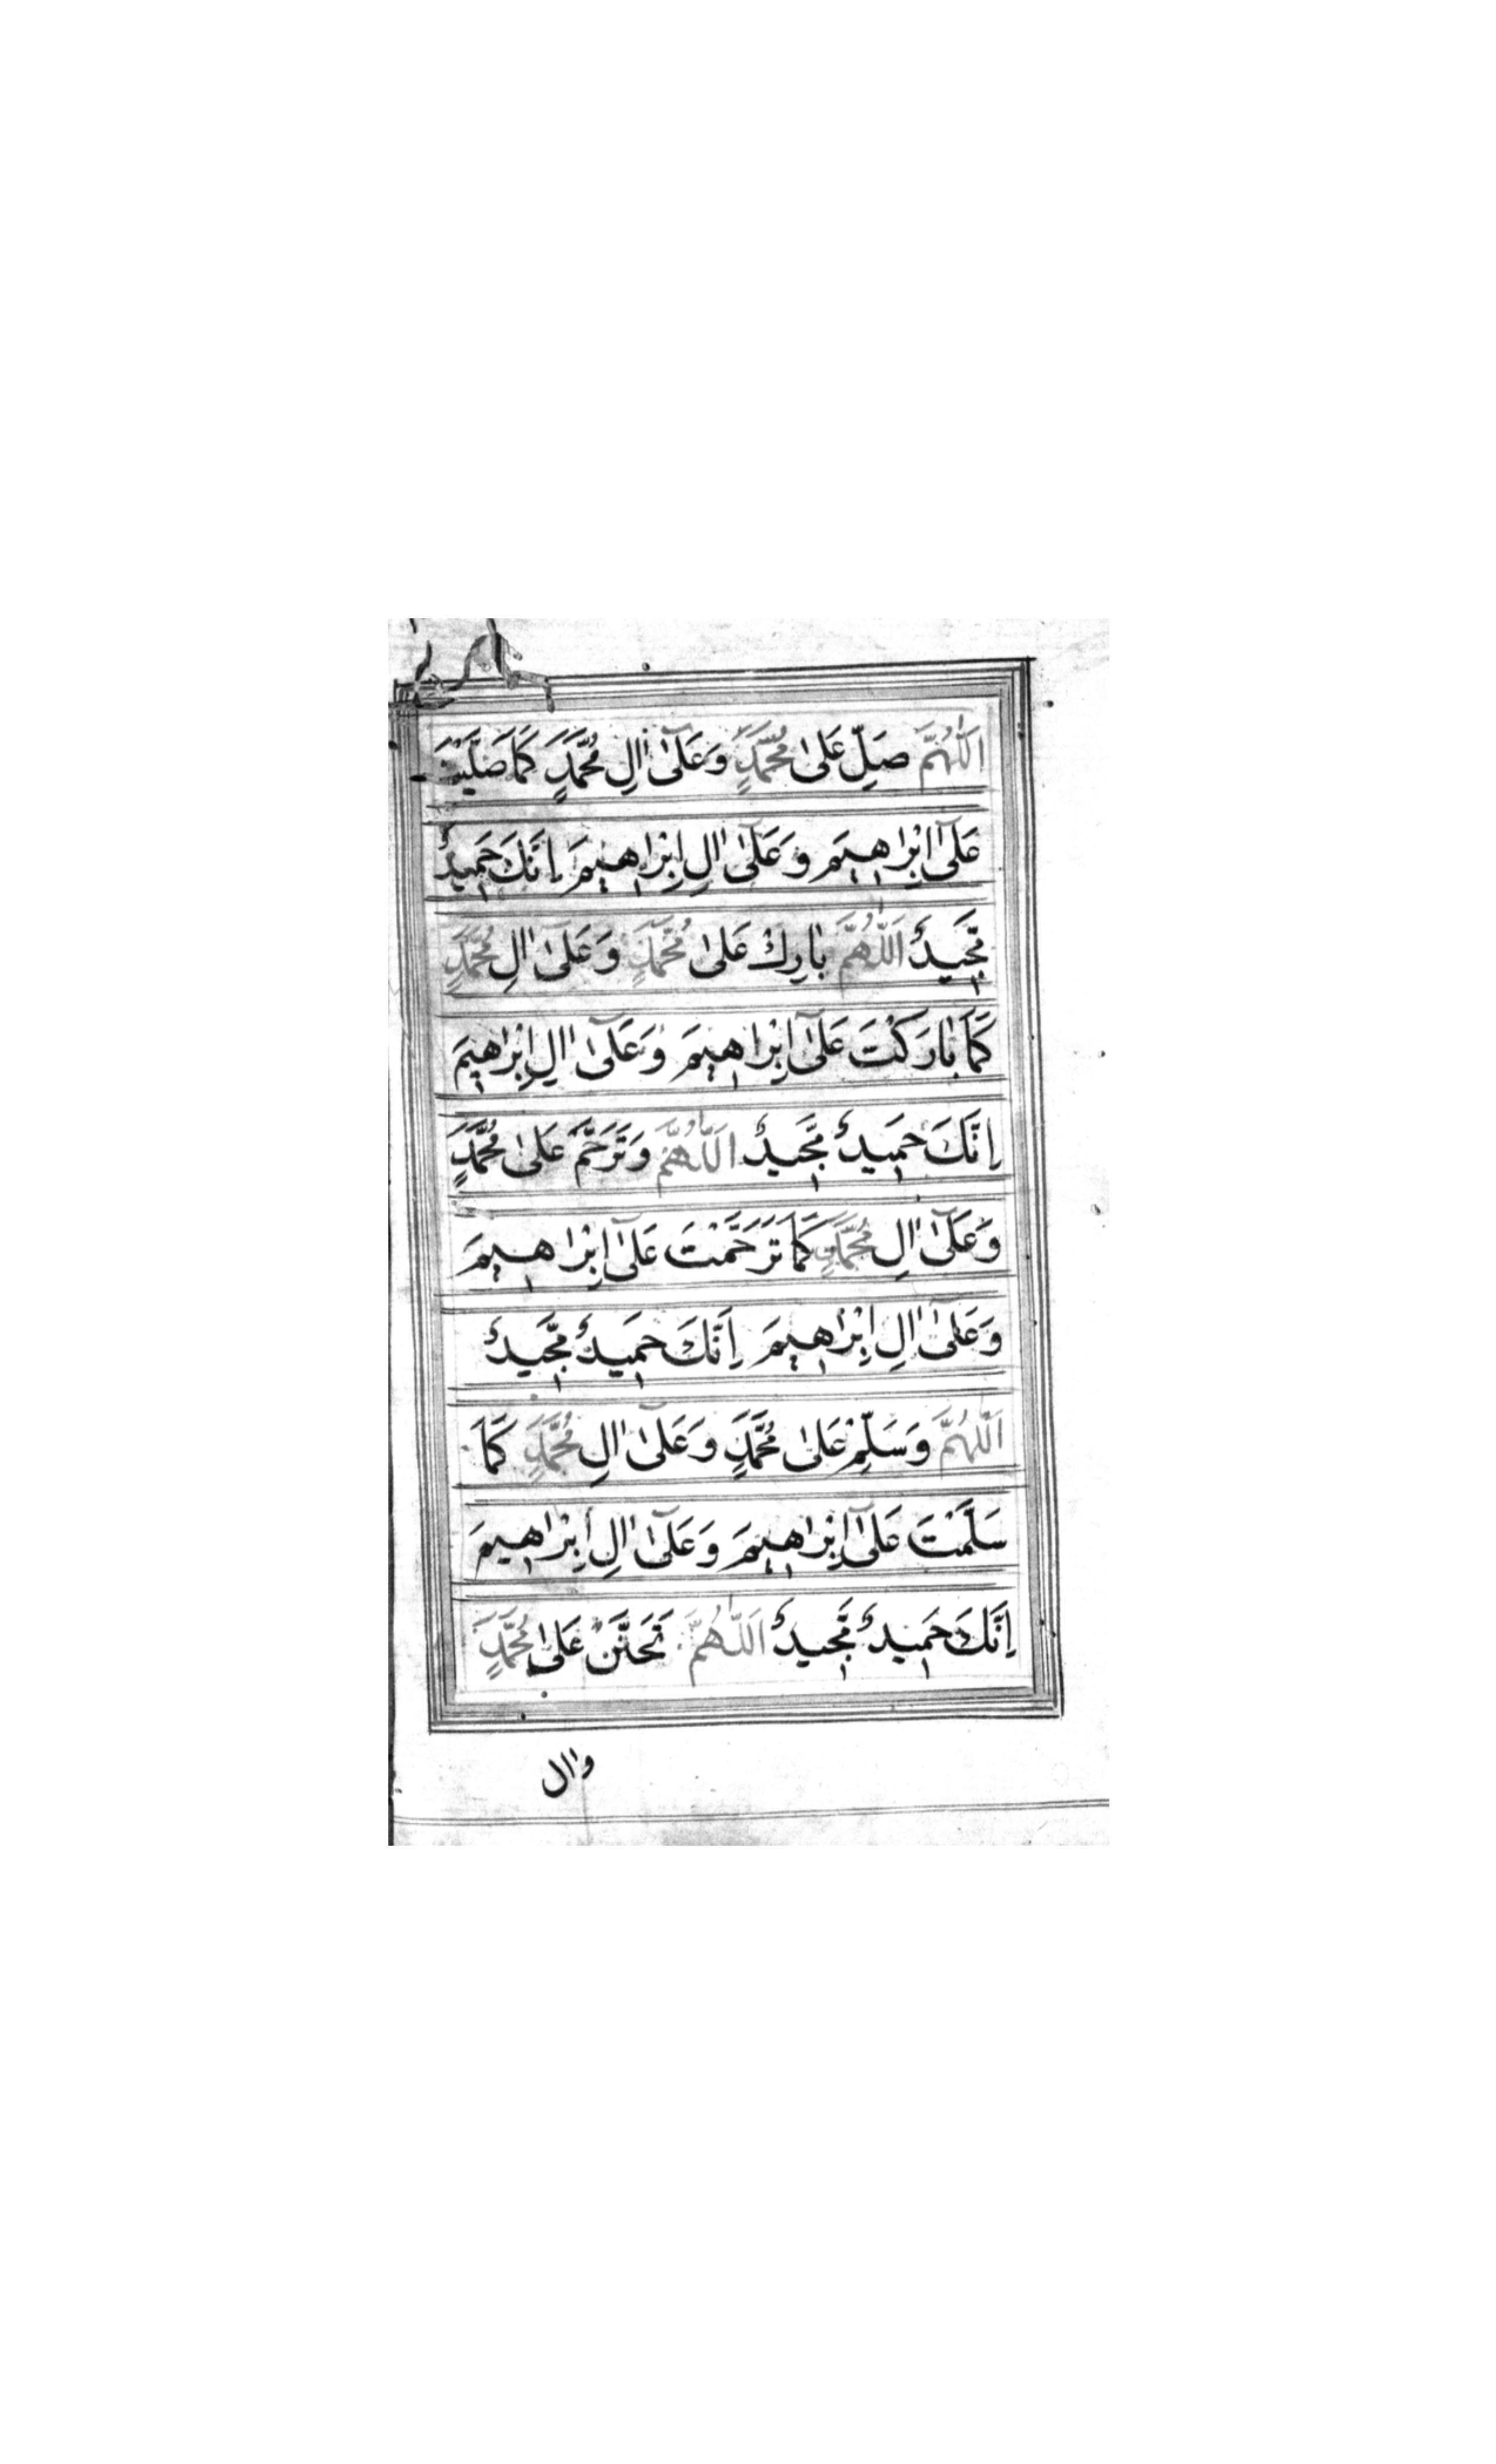 اَللّٰهُمَّ صَلِّ عَلىٰ مُحَمَّدٍ وَعَلىٰٓ اٰلِ مُحَمَّدٍ كَمَا صَلَّيْتَ
عَلىٰٓ اِبْرٰاهِيمَ وَعَلىٰٓ اٰلِ اِبْرٰاهِيمَ اِنَّكَ حَمِيدٌ
مَّجِيدٌ اَللّٰهُمَّ بٰارِكْ عَلىٰ مُحَمَّدٍ وَعَلىٰٓ اٰلِ مُحَمَّدٍ
كَمَا بٰارَكْتَ عَلىٰٓ اِبْرٰاهِيمَ وَعَلىٰٓ اٰلِ اِبْرٰاهِيمَ
اِنَّكَ حَمِيدٌ مَّجِيدٌ اَللّٰهُمَّ وَتَرَحَّمْ عَلىٰ مُحَمَّدٍ
وَعَلىٰٓ اٰلِ مُحَمَّدٍ كَمَا تَرَحَّمْتَ عَلىٰٓ اِبْرٰاهِيمَ
وَعَلىٰٓ اٰلِ اِبْرٰاهِيمَ اِنَّكَ حَمِيدٌ مَّجِيدٌ
اَللّٰهُمَّ وَسَلِّمْ عَلىٰ مُحَمَّدٍ وَعَلىٰٓ اٰلِ مُحَمَّدٍ كَمَا
سَلَّمْتَ عَلىٰٓ اِبْرٰاهِيمَ وَعَلىٰٓ اٰلِ اِبْرٰاهِيمَ
اِنَّكَ حَمِيدٌ مَّجِيدٌ اَللّٰهُمَّ تَحَنَّنْ عَلىٰ مُحَمَّدٍ
واٰل